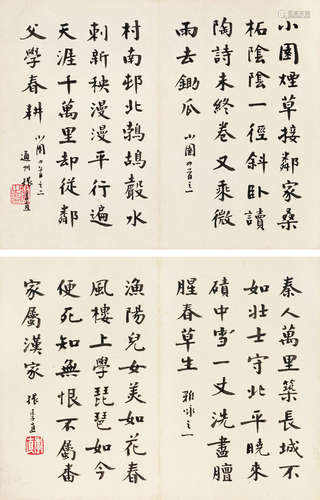 小園煙草接鄰家桑
柘陰陰一徑斜臥讀
陶詩未終卷又乘微
雨去鋤瓜 小園四首之一
村南邨北鵓鴣聲水
刺新秧漫漫平行遍
天涯千萬里却從鄰
父學春耕 小園四首之一
通州張季直
秦人萬里築長城不
如壯士守北平曉來
磧中雪一丈洗盡膻
腥春草生 之一
漁陽兒女美如花春
風樓上學琵琶如今
便死知無恨不屬番
家屬漢家 張季直